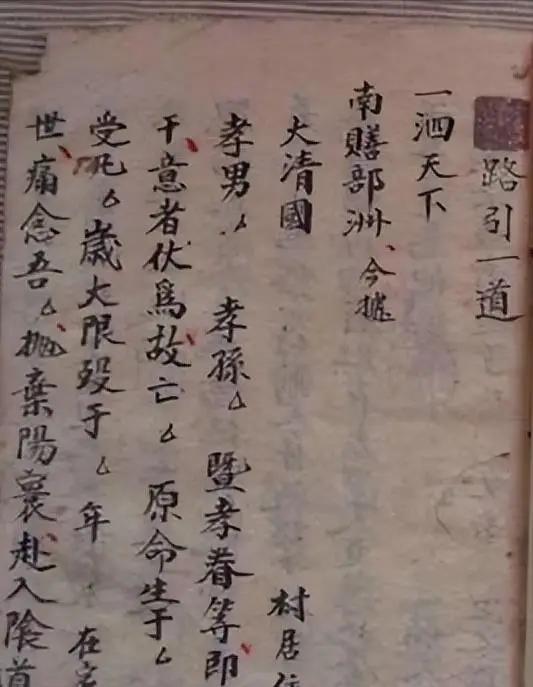 路引一道
一泗天下
南贍部洲今據
大清國 村居住
孝男 孝孫 暨孝眷等即
干意者伏爲故亡 原命生于
受死 歲大限殁于 年 在
世痛念吾 抛棄陽裏赴入陰道